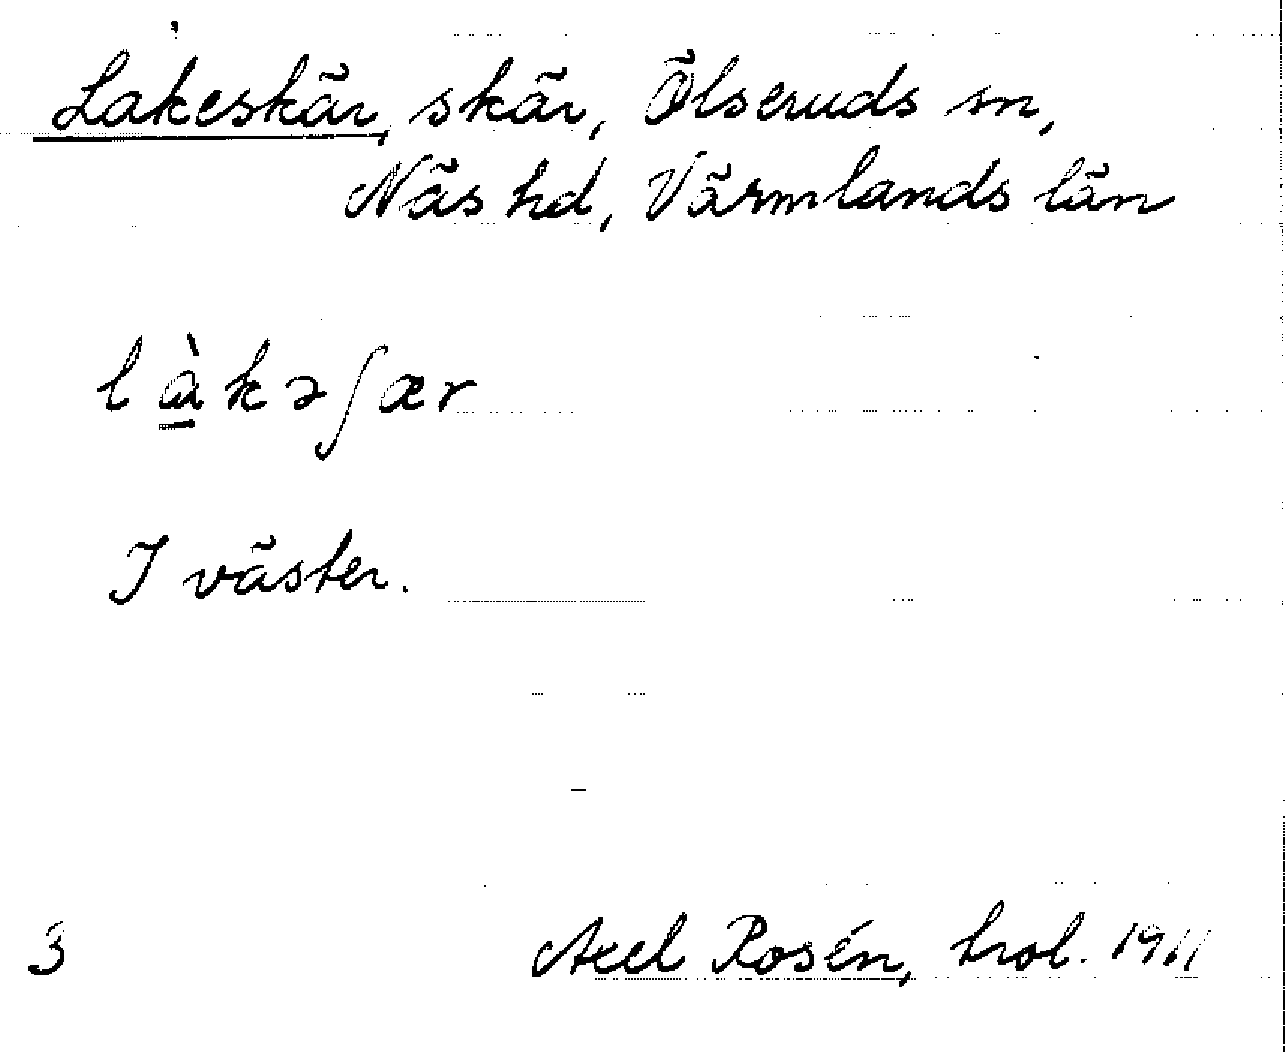 Lakeskär, skär, Ölseruds sn,
Näs hd, Värmlands län
l<u>à</u>kəʃær
I väster.
3 Axel Rosén, trol. 1911